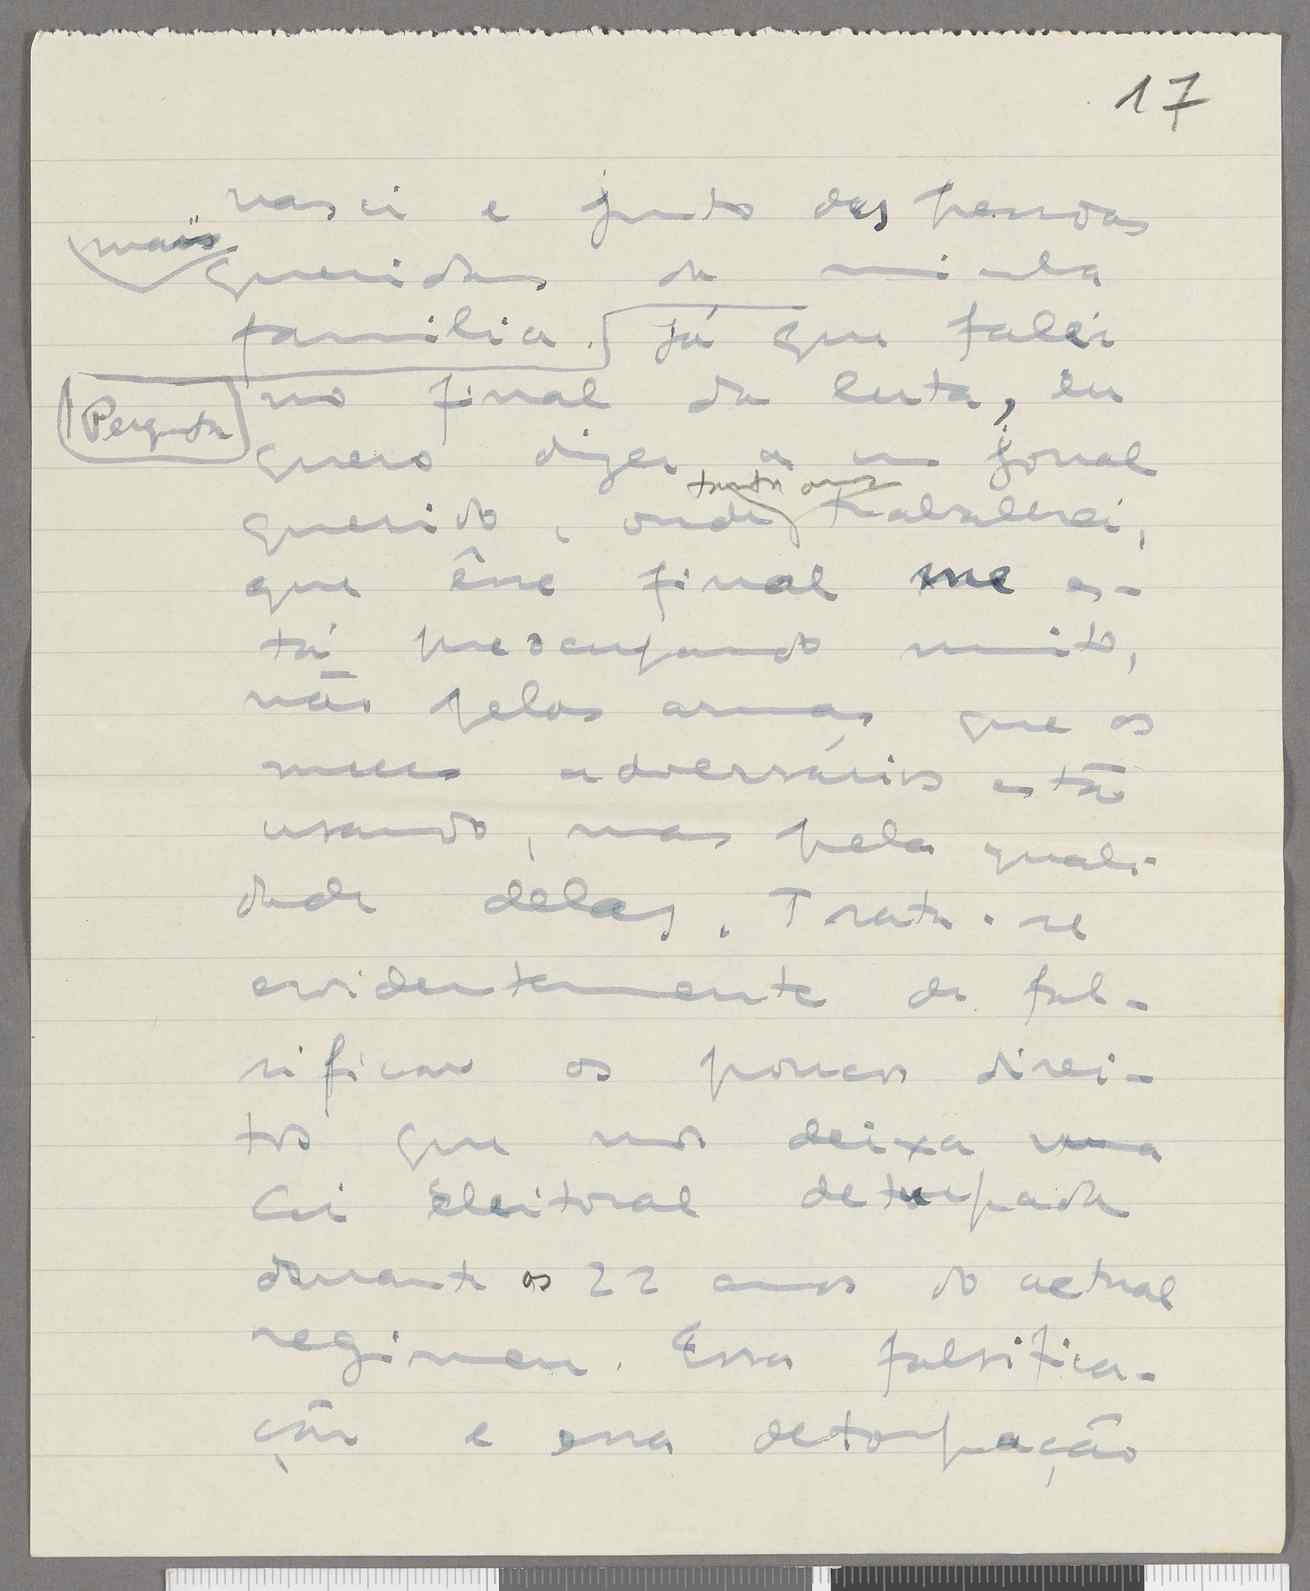 17
nasci e junto das pessoas
mais
queridas da minha
familia. Já que falei
no final da luta, eu
Pergunta
quero dizer a um jornal
tanto ano
querido, onde trabalhei,
que êsse final me es-
tá preocupando muito,
não pelas armas que os
meus adversários estão
usando, mas pela quali-
dade delas. Trata-se
evidentemente de fal-
sificar os poucos direi-
tos que nos deixa uma
Lei Eleitoral deturpada
durante os 22 anos do actual
regimen. Essa falsifica-
ção e essa deturpação